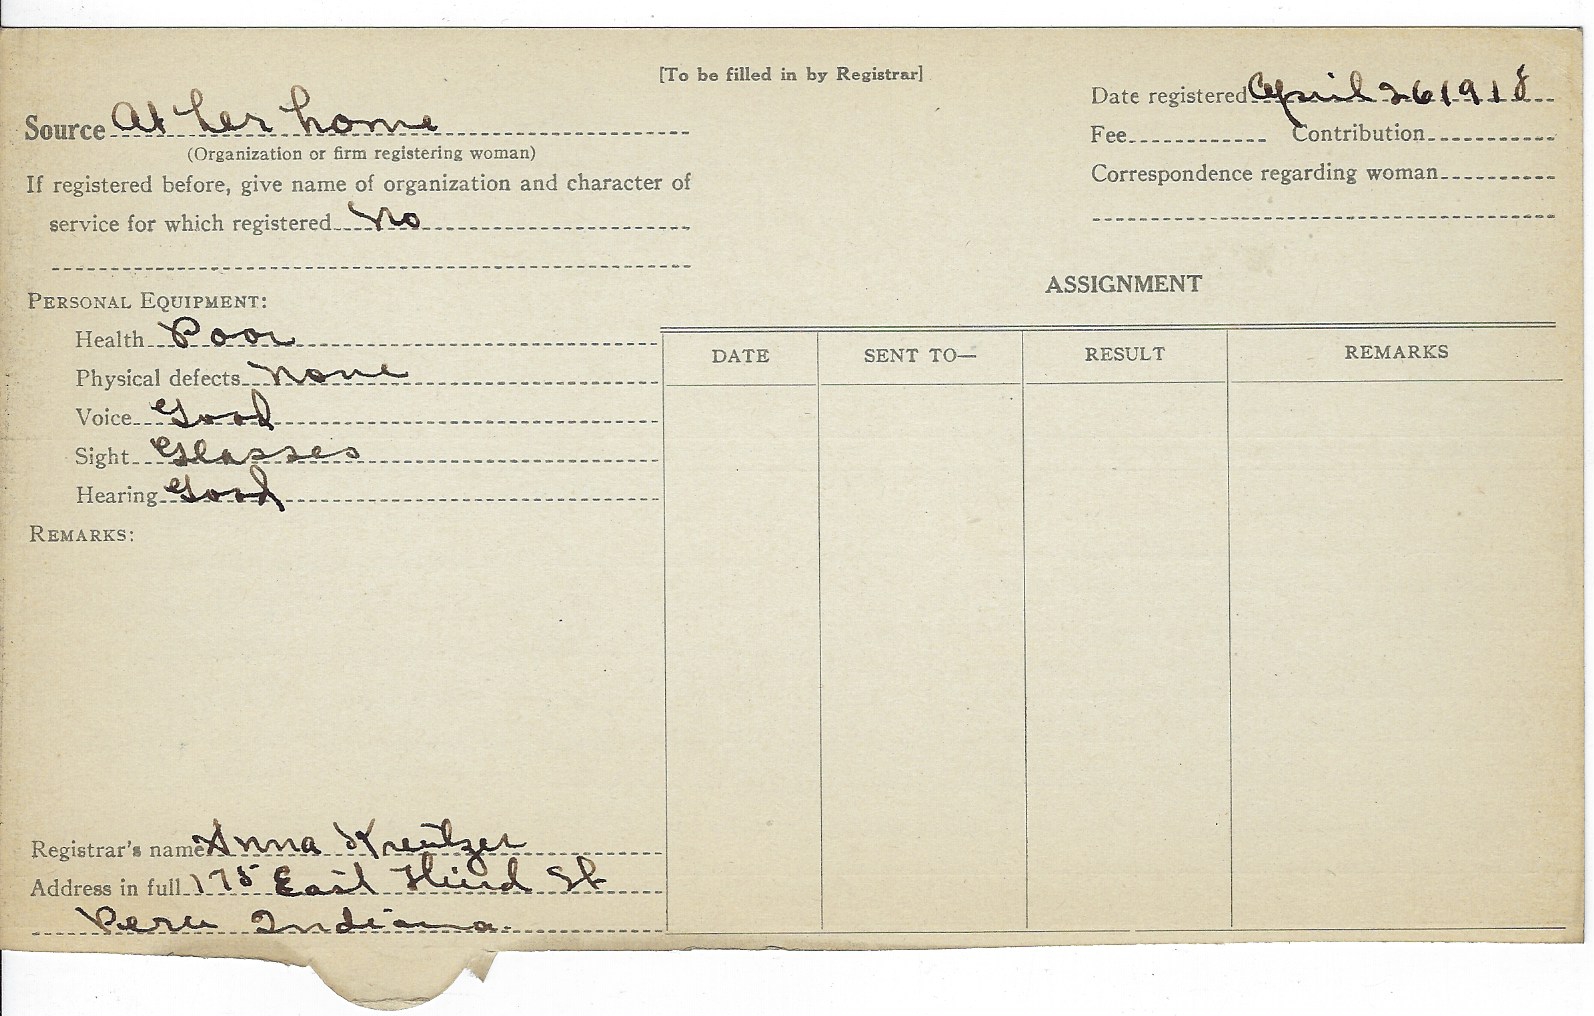 [To be filled in by Registrar]
Source At her home
(Organization or firm registering woman)
If registered before, give name of organization and character of
service for which registered No
Date registered April 26 1918
Fee Contribution
Correspondence regarding woman
PERSONAL EQUIPMENT:
Health Poor
Physical defects None
Voice Good
Sight Glasses
Hearing Good
REMARKS:
Registrar's name Anna Kreutzer
Address in full 175 East Third St
Peru Indiana.
ASSIGNMENT
DATE SENT TO— RESULT REMARKS